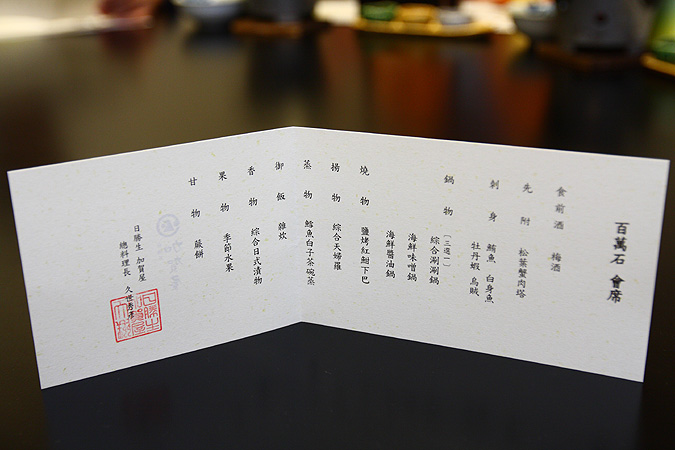 百萬石 會席
食前酒 梅酒
先附 松葉蟹肉塔
刺身 鮪魚 白身魚
牡丹蝦 烏賊
鍋物 [三選一]
綜合涮涮鍋
海鮮味噌鍋
海鮮醬油鍋
燒物 鹽烤紅魽下巴
揚物 綜合天婦羅
蒸物 鱈魚白子茶碗蒸
御飯 雜炊
香物 綜合日式漬物
果物 季節水果
甘物 蕨餅
日勝生 加賀屋
總料理長 久世